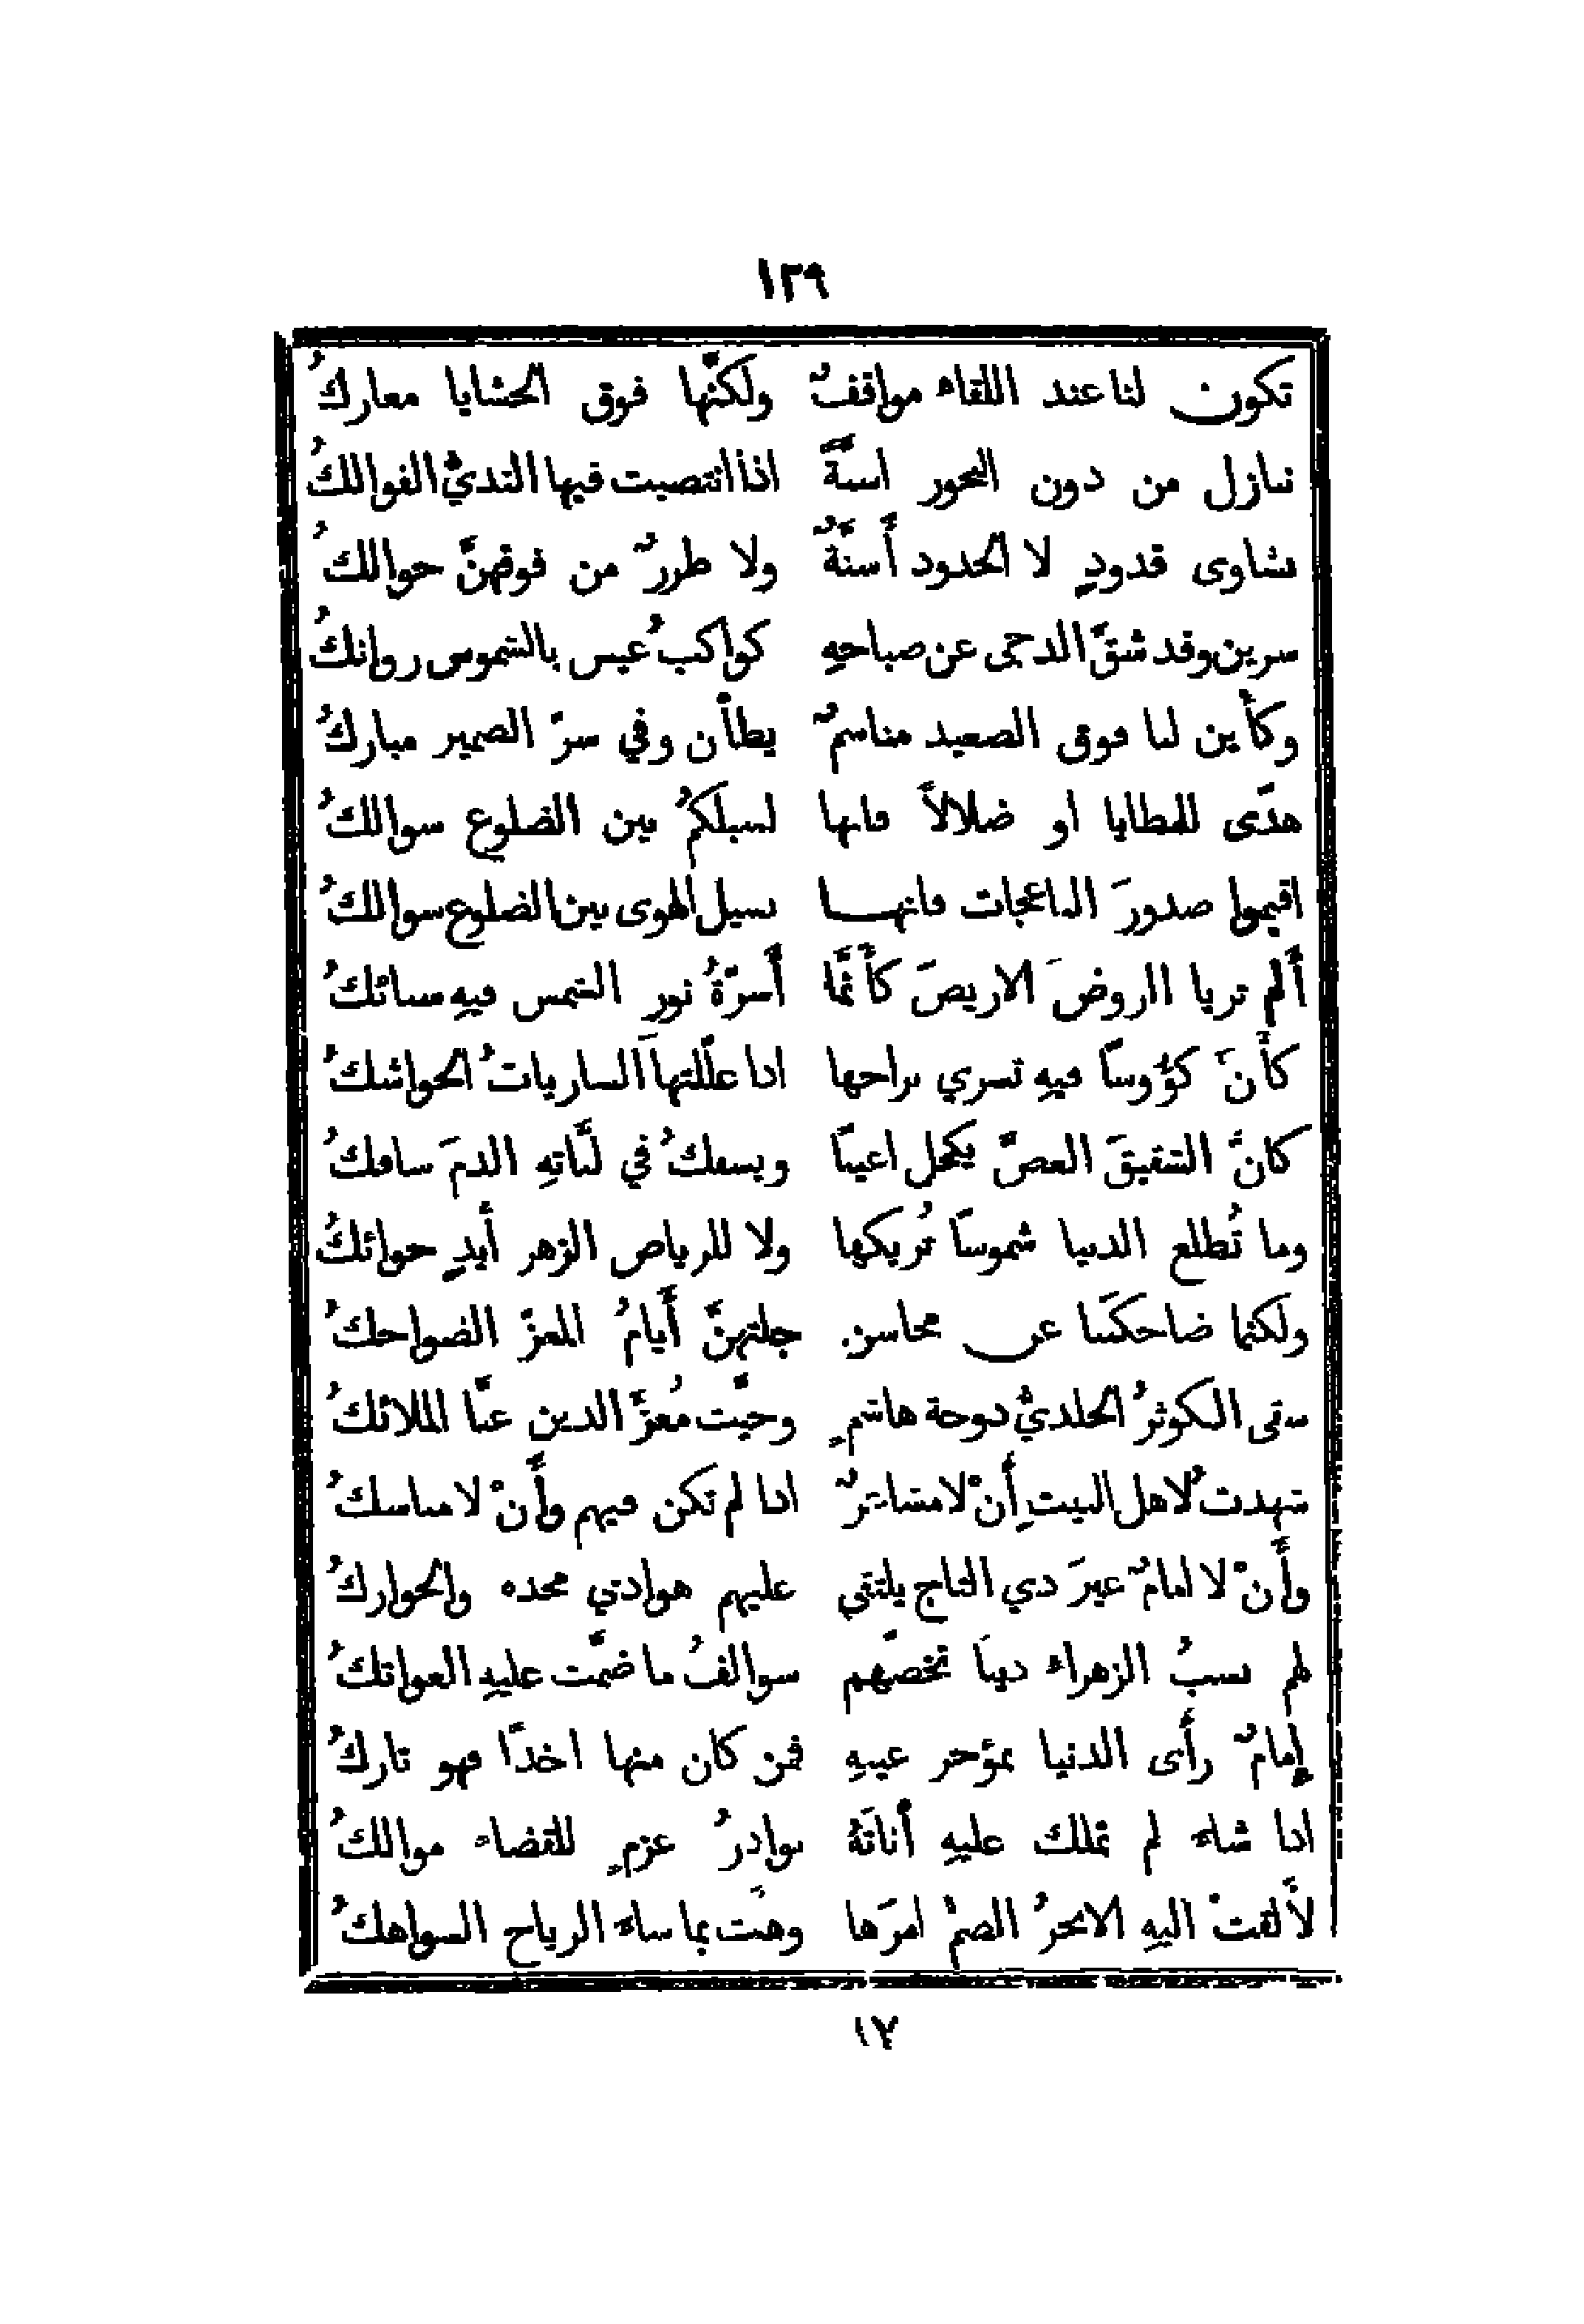 ١٢٩
تكون لنا عند اللقاء مواقفٌ ولكنّها فوق الحشايا معاركُ
ننازل من دون النحور اسنَّةً اذا انتصبت فيها الثديُّ الفوالكُ
نشاوى قدودٍ لا الخدود أَسنَّةٌ ولا طررٌ من فوقهنَّ حوالكُ
سرين وقد شقَّ الدجى عن صباحهِ كواكبُ عيس بالشموس رواتكُ
وكأَين لنا فوق الصعيد مناسمٌ يطأن وفي سرّ الضمير مباركُ
هدًى للمطايا او ضلالاً فانها لسبلكمُ بين الضلوع سوالكُ
اقيموا صدورَ الناعجات فانهـــا سبيل الهوى بين الضلوع سوالكُ
أَلم تريا الروضَ الاريضَ كأَنَّما أَسرّةُ نورِ الشمس فيهِ سبائكُ
كأَنَّ كؤُوسًا فيهِ تسري براحها اذا علّلتها الساريات الحواشكُ
كانَّ الشقيقَ الغضَّ يكحل اعينًا ويسفكُ في لبَّاتهِ الدمَ سافكُ
وما تُطلع الدنيا شموسًا تُريكها ولا للرياض الزهر أَيدٍ حوائكُ
ولكنما ضاحكننا عن محاسن جلتهنَّ أَيامُ المعزّ الضواحكُ
سقى الكوثرُ الخلديُّ دوحة هاشمٍ وحيَّت مُعزَّ الدين عنَّا الملائكُ
شهدت لاهل البيتِ أَنْ لا مشاعرٌ اذا لم تكن فيهم وأَنْ لا مناسكُ
وأَنْ لا امامٌ غيرَ ذي التاج يلتقي عليهم هوادي مجده والحواركُ
لهم نسبُ الزهراء دنيًا تخصّهم سوالفُ ما ضمَّت عليهِ العواتكُ
إِمامٌ رأَى الدنيا بمؤخر عينهِ فمن كان منها اخذًا فهو تاركُ
اذا شاء لم تملك عليهِ أَناتَهُ بوادرُ عزمٍ للقضاء موالكُ
لأَلقتْ اليهِ الابحرُ الصمُّ امرَها وهبَّت بما شاء الرياح السواهكُ
١٧